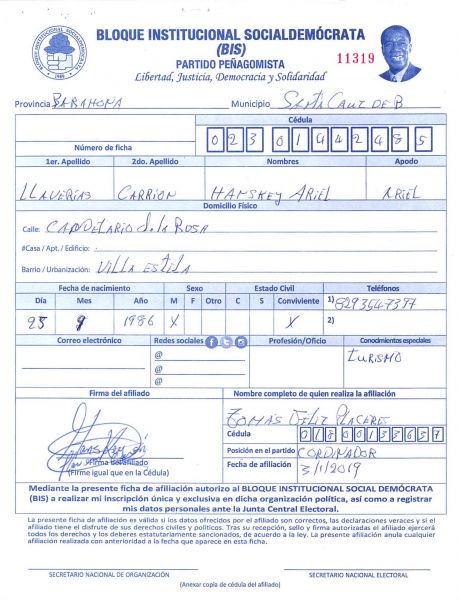 BLOQUE INSTITUCIONAL SOCIALDEMÓCRATA
(BIS)
PARTIDO PEÑAGOMISTA
Libertad, Justicia, Democracia y Solidaridad
11319
BLOQUE INSTITUCIONAL SOCIALDEMOCRATA
1989
Provincia BARAHONA Municipio Santa Cruz DE B
Cédula
Número de ficha 023 0144248 5
1er. Apellido 2do. Apellido Nombres Apodo
LLAVERIAS CARRION HAMSKEY ARIEL ARIEL
Domicilio Físico
Calle: CANDELARIO de la ROSA
#Casa / Apt. / Edificio:
Barrio / Urbanización: Villa Estela
Fecha de nacimiento Sexo Estado Civil Teléfonos
Día Mes Año M F Otro C S Conviviente 1) 8293547397
25 9 1986 X X 2)
Correo electrónico Redes sociales Profesión/Oficio Conodmientos especiales
@ TURISMO
@
@
Firma del afiliado Nombre completo de quien realiza la afiliación
TOMAS FELIZ PLACERES
Cédula 018 0013565 7
Posición en el partido CORDINADOR
Firma del afiliado
(Firme igual que en la Cédula) Fecha de afiliación 3/1/2019
Mediante la presente ficha de afiliación autorizo al BLOQUE INSTITUCIONAL SOCIAL DEMÓCRATA
(BIS) a realizar mi inscripción única y exclusiva en dicha organización política, así como a registrar
mis datos personales ante la Junta Central Electoral.
La presente ficha de afiliación es válida si los datos ofrecidos por el afiliado son correctos, las declaraciones veraces y si el
afiliado tiene el disfrute de sus derechos civiles y políticos. Tras su recepción, sello y firma autorizadas el afiliado ejercerá
todos los derechos y los deberes estatutariamente sancionados, de acuerdo a la ley. La presente afiliación anula cualquier
afiliación realizada con anterioridad a la fecha que aparece en esta ficha.
SECRETARIO NACIONAL DE ORGANIZACIÓN SECRETARIO NACIONAL ELECTORAL
(Anexar copia de cédula del afiliado)